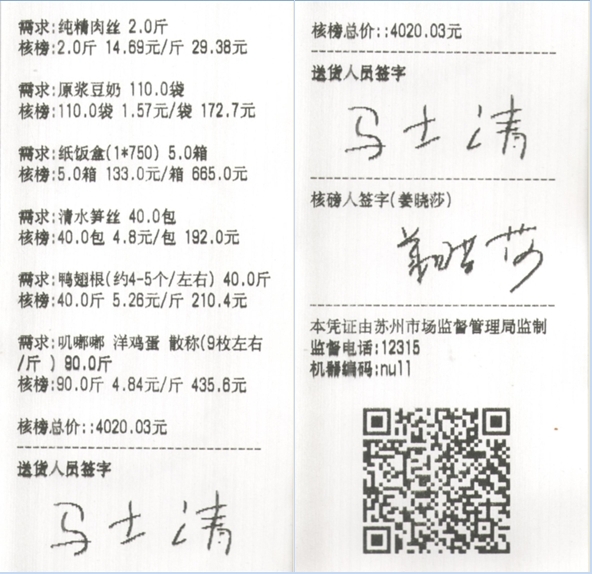 需求:纯精肉丝 2.0斤
核榜:2.0斤 14.69元/斤 29.38元
需求:原浆豆奶 110.0袋
核榜:110.0袋 1.57元/袋 172.7元
需求:纸饭盒(1*750) 5.0箱
核榜:5.0箱 133.0元/箱 665.0元
需求:清水笋丝 40.0包
核榜:40.0包 4.8元/包 192.0元
需求:鸭翅根(约4-5个/左右) 40.0斤
核榜:40.0斤 5.26元/斤 210.4元
需求:叽嘟嘟 洋鸡蛋 散称(9枚左右
/斤 ) 90.0斤
核榜:90.0斤 4.84元/斤 435.6元
核榜总价::4020.03元
送货人员签字
马士清
核榜总价::4020.03元
送货人员签字
马士清
核磅人签字(姜晓莎)
本凭证由苏州市场监督管理局监制
监督电话:12315
机器编码:null